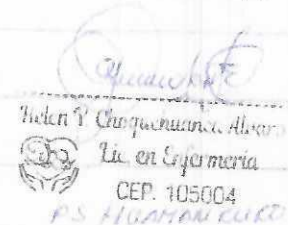 Helen P. Choquehuanca Alvaro
Lic. en Enfermería
CEP. 105004
P.S HUAMANRURO